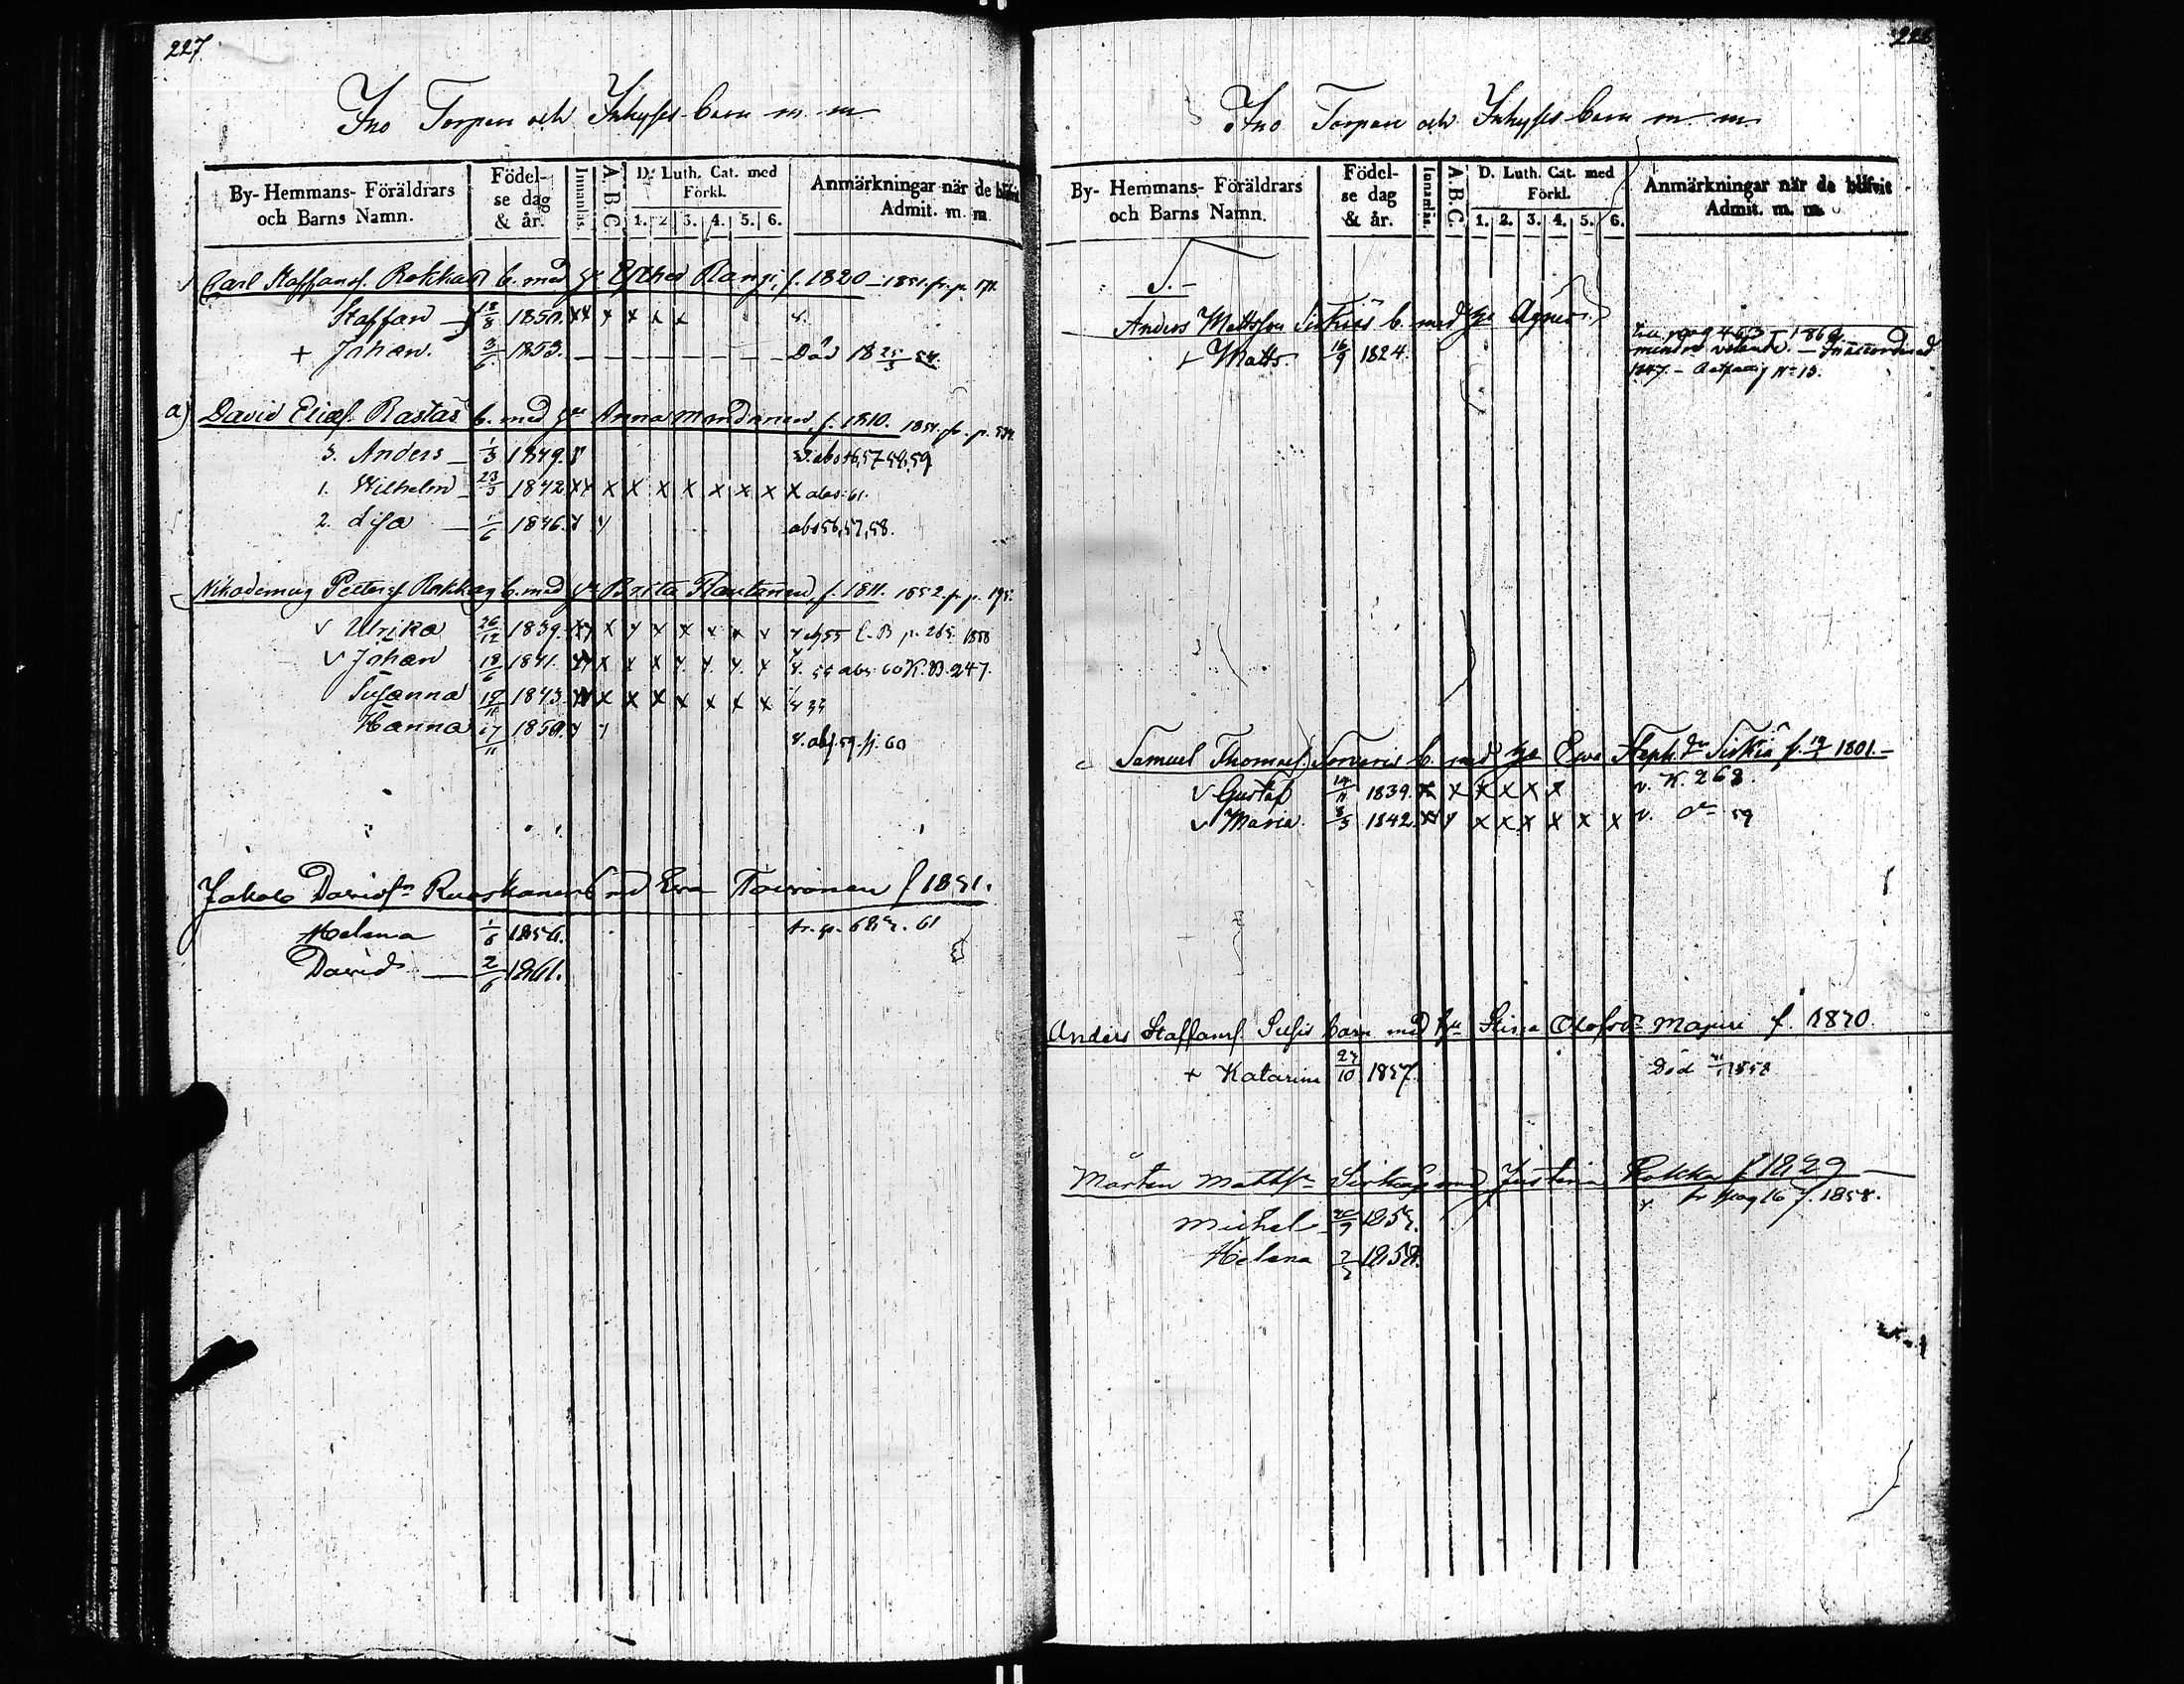 227.
Ino Torpare och Inhyses barn m. m.
By- Hemmans- Föräldrars och Barns Namn.
Födelse dag & år.
Innanläs.
A. B. C.
D. Luth. Cat. med Förkl.
1. 2. 3. 4. 5. 6.
Anmärkningar när de blifvit Admit. m. m.
Carl Staffans. Rokka b. med h. Esther Rangi, f. 1820 – 1851. fr. p. 171.
Staffan 18/8 1850. x x x x x x
+ Johan. 3/6 1853. – – – – – – – – Död 18 25/3 54.
a) David Elias. Rastas b. med hu Anna Mondonen, f. 1810. 1851. fr. p.
3. Anders 1/3 1849. abs 56, 57 58, 59
1. Wilhelm 23/3 1842 x x x x x x x x x abs: 61.
2. Lisa 1/6 1846. abs 56, 57, 58.
Nikodemus Petters. Rokka b. med hu Brita Rautanen, f. 1811. 1852. fr. p. 195.
v Ulrika 26/12 1839. x x x x x x x 55 L. B p. 265. 1858
v Johan 18/6 1841. x x x x x x x 55 abs 60 K. B. 247.
Susanna 19/11 1843 x x x x x x x x
Hanna 17/11 1850. abs. 59. fr. 60
Jakob Davids. Ruoskanen b md Eva Toivonen f 1831.
Helena 1/6 1856. fr. p. 61
David 2/6 1861.
Ino Torpare och Inhyses barn m. m.
By- Hemmans- Föräldrars och Barns Namn.
Födelse dag & år.
Innanläs.
A. B. C.
D. Luth. Cat. med Förkl.
1. 2. 3. 4. 5. 6.
Anmärkningar när de blifvit Admit. m. m.
S. –
Anders Mattsson Sirkiäs b. med hu Agnes
+ Matts. 16/9 1824. till pag 463 – 1860. mindre vetande. –
1847. –
Samuel Thomas. Torvinis b. med hu Eva Steph.dr Sirkiä f. 1801. –
v Gustaf 14/11 1839. x x x x x x v. K. 268.
v Maria. 8/3 1842 x x x x x x x v. do 59
Anders Staffans. Pusis barn med hu Stina Olofsdr. Majuri f. 1830.
+ Katarina 27/10 1857. Död 1858
Mårten Matts. Sirkiäs md Justina Rokka f 1829
fr pag 167. 1858.
Michel 20/9 1854.
Helena 2/3 1858.